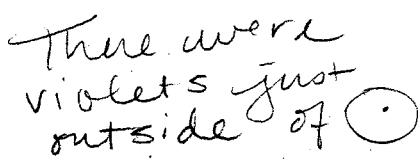 There were
violets just
outside of ⊙